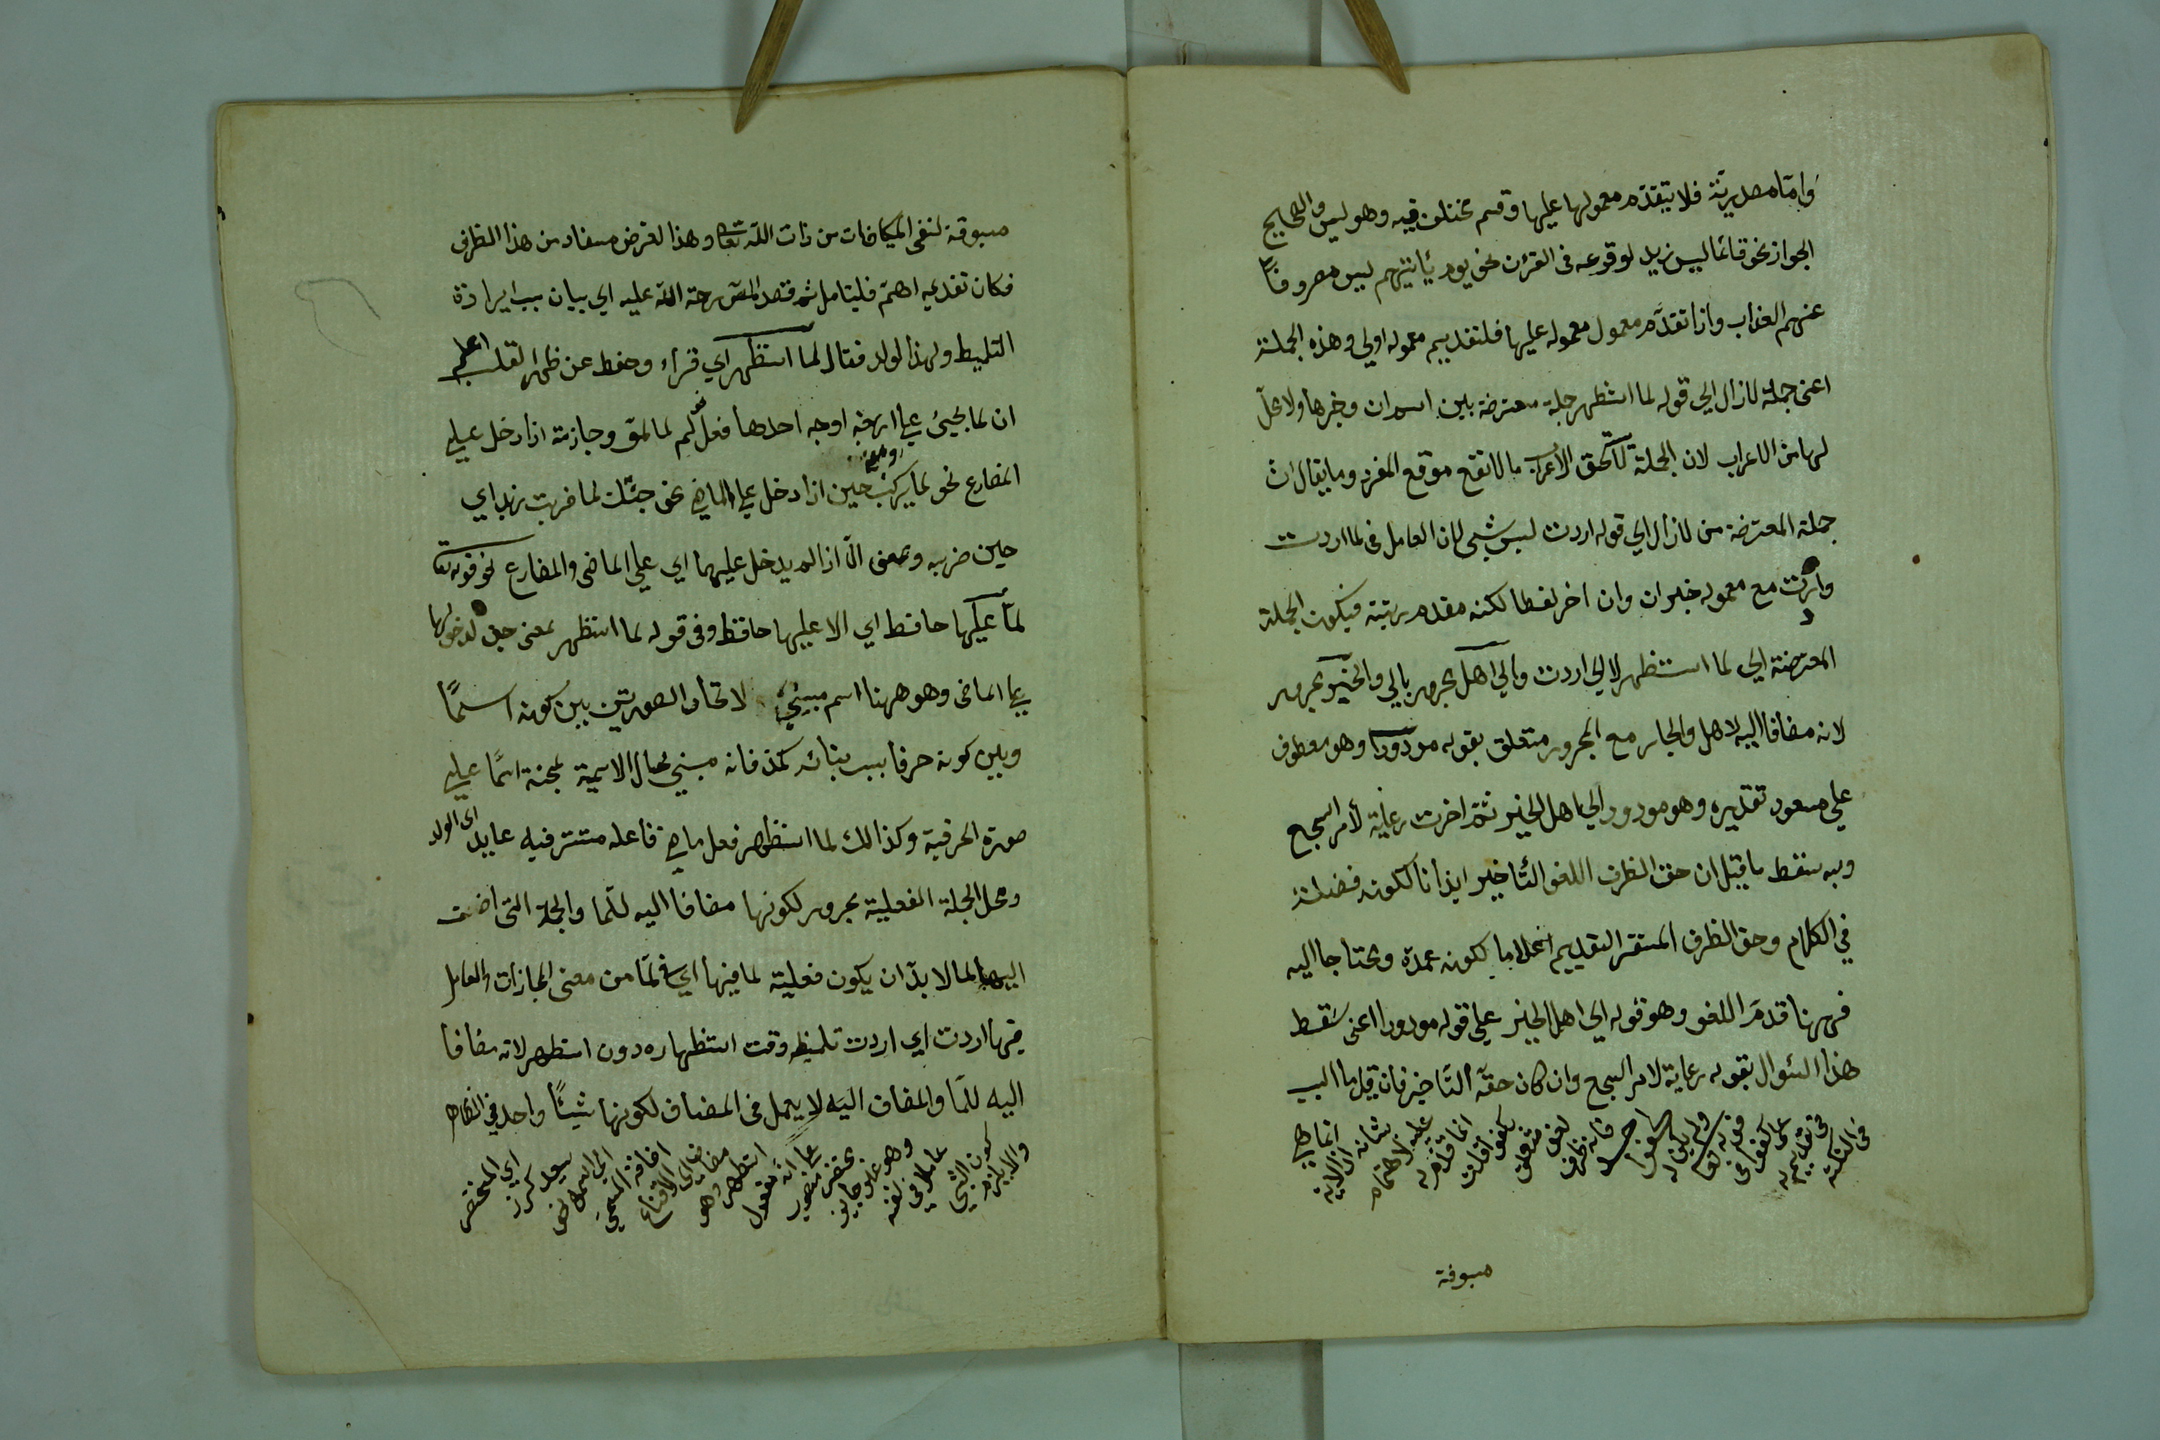 وامّا مصدريّة فلا يتقدّم معمولها عليها وقسم مختلف فيه وهو ليس والصحيح
الجواز نحو قائما ليس زيد لوقوعه في القرءن نحو يوم يأتيهم ليس مصروفًا
عنهم العذاب واذا تقدّم معمول معموله عليها فلتقديم معموله اولي وهذه الجملة
اعنى جملة لازال الي قوله لما استظهر جملة معترضة بين اسم ان وخبرها ولا محلّ
لها من الاعراب لان الجملة لا تستحق الاعراب ما لا تقع موقع المفرد وما يقال ان
جملة المعترضة من لازال الي قوله اردت ليس بشيء لان العامل في لما اردت
واردت مع معموله خبر ان وان اخر لفظا لكنه مقدم رتبة فيكون الجملة
المعترضة الي لما استظهر لا الي اردت والي اهل مجرور بالي والخير مجرور
لانه مضافا اليه لاهل والجار مع المجرور متعلق بقوله مودودا وهو معطوف
علي مسعود تقديره وهو مودود الي اهل الخير ثمّ اخرت رعاية لأمر السجع
وبه سقط ما قيل ان حق الظرف اللغو التأخير ايذانا لكونه فضلة
في الكلام وحق الظرف المستقر التقديم اعلاما لكونه عمدة ومحتاجا اليه
فههنا قدم اللغو وهو قوله الي اهل الخير علي قوله مودودا اعنى سقط
هذا السئوال بقوله رعاية لامر السجع وان كان حقّه التاخير فان قيل ما السبب
في النكتة
في تقديم له
على كفوا في
قوله تعا
ولم يكن له
كفوا
احد
فانه ظرف
لغو متعلق
بكفوا قلت
انما قدم له
عليه لاهتمام
شانه اذ الاية
انما هي
مسوقة
مسوقة لنفى المكافات من ذات اللّه تعا وهذا لغرض مستفاد من هذا الظرف
فكان تقديمه اهمّ فليتامل ثم قصد المص رحمة اللّه عليه اي بيان سبب ايراده
التلبيط ولهذا الولد فقال لما استظهر اي قراء وحفظ عن ظهر القلب اعلم
ان لما يجيئ علي اربعة اوجه احدها فعل نحو لم لما لموّ وجازمة اذا دخل عليه
المضارع نحو لما يركب وبمعنى حين اذا دخل علي الماضي نحو جئتك لما ضربت زيد اي
حين ضربه وبمعنى الّا اذا لم يدخل عليهما اي علي الماضى والمضارع نحو قوله تعا
لمّا عليها حافظ اي الا عليها حافظ وفي قوله لما استظهر بمعنى حين لدخولها
علي الماضى وهو ههنا اسم مبني لاتحاد الصورتين بين كونه اسمًا
وبين كونه حرفا بسبب بنائه كمذ فانه مبني حال الاسمية لمجئه اسمًا عليه
صورة الحرفية وكذالك لما استظهر فعل ماض فاعله مستتر فيه عايد اى الولد
ومحل الجملة الفعلية مجرور لكونها مضافا اليه للمّا والجملة التى اضيفت
اليها لما لا بدّ ان يكون فعلية لما فيها اي في لمّا من معنى المجازات والعامل
فيها اردت اي اردت تلميظه وقت استظهاره دون استظهر لانه مضافا
اليه للمّا والمضاف اليه لا يعمل في المضاف لكونها شيئًا واحد في الظاهر
والا يلزم
كون الشيئ
عاملا في نفسه
وهو غير جايز
علي انّه نقول
استظهر وهو
مضاف الي الاقناع
اضافة المسمى
الي اسمه نحو
سعيد كرز
اي المختصر